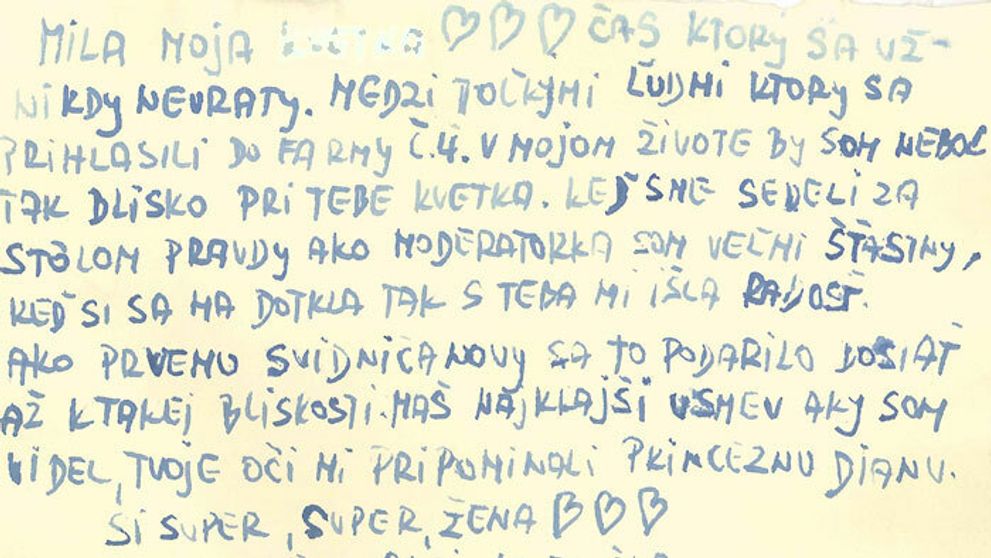 MILA MOJA KVETKA ♡♡♡ ČAS KTORÝ SA UŽ-
NIKDY NEVRATY. MEDZI TOĽKÝMI ĽUDMI KTORY SA
PRIHLASILI DO FARMY Č.4. V MOJOM ŽIVOTE BY SOM NEBOL
TAK BLISKO PRI TEBE KVETKA. KEĎ SME SEDELI ZA
STOLOM PRAVDY AKO MODERATORKA SOM VEĽMI ŠŤASTNY,
KEĎ SI SA MA DOTKLA TAK S TEBA MI IŠLA RADOSŤ.
AKO PRVEMU SVIDNIČANOVY SA TO PODARILO DOSIAŤ
AŽ K TAKEJ BLISKOSTI. MAŠ NAJKLAJŠI USMEV AKY SOM
VIDEL, TVOJE OČI MI PRIPOMINALI PRINCEZNU DIANU.
SI SUPER, SUPER, ŽENA ♡♡♡